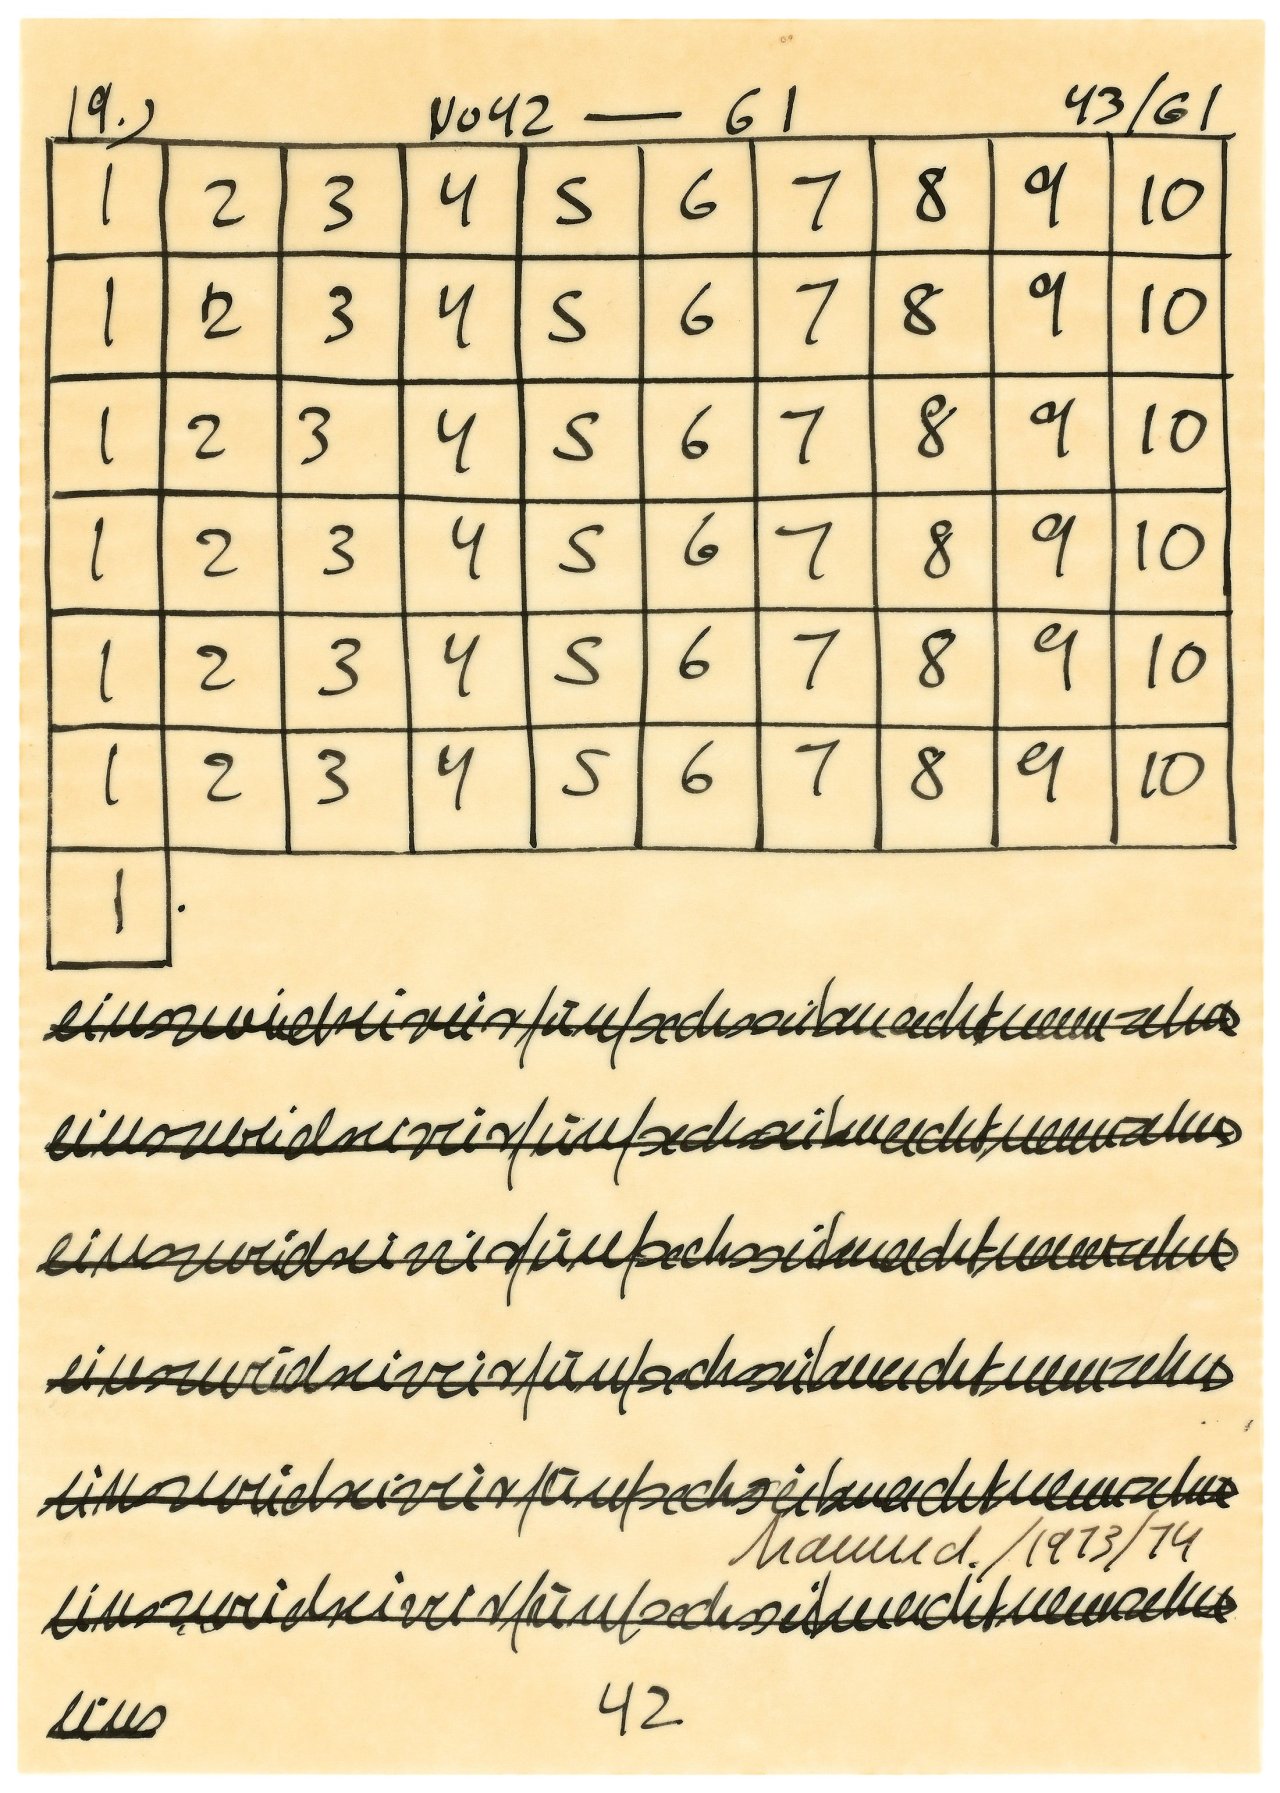 19.) No 42 — 61 43/61
1 2 3 4 5 6 7 8 9 10
1 2 3 4 5 6 7 8 9 10
1 2 3 4 5 6 7 8 9 10
1 2 3 4 5 6 7 8 9 10
1 2 3 4 5 6 7 8 9 10
1 2 3 4 5 6 7 8 9 10
1.
einszweidreivierfünfsechssiebenachtneunzehn
einszweidreivierfünfsechssiebenachtneunzehn
einszweidreivierfünfsechssiebenachtneunzehn
einszweidreivierfünfsechssiebenachtneunzehn
einszweidreivierfünfsechssiebenachtneunzehn
/1973/74
einszweidreivierfünfsechssiebenachtneunzehn
eins 42